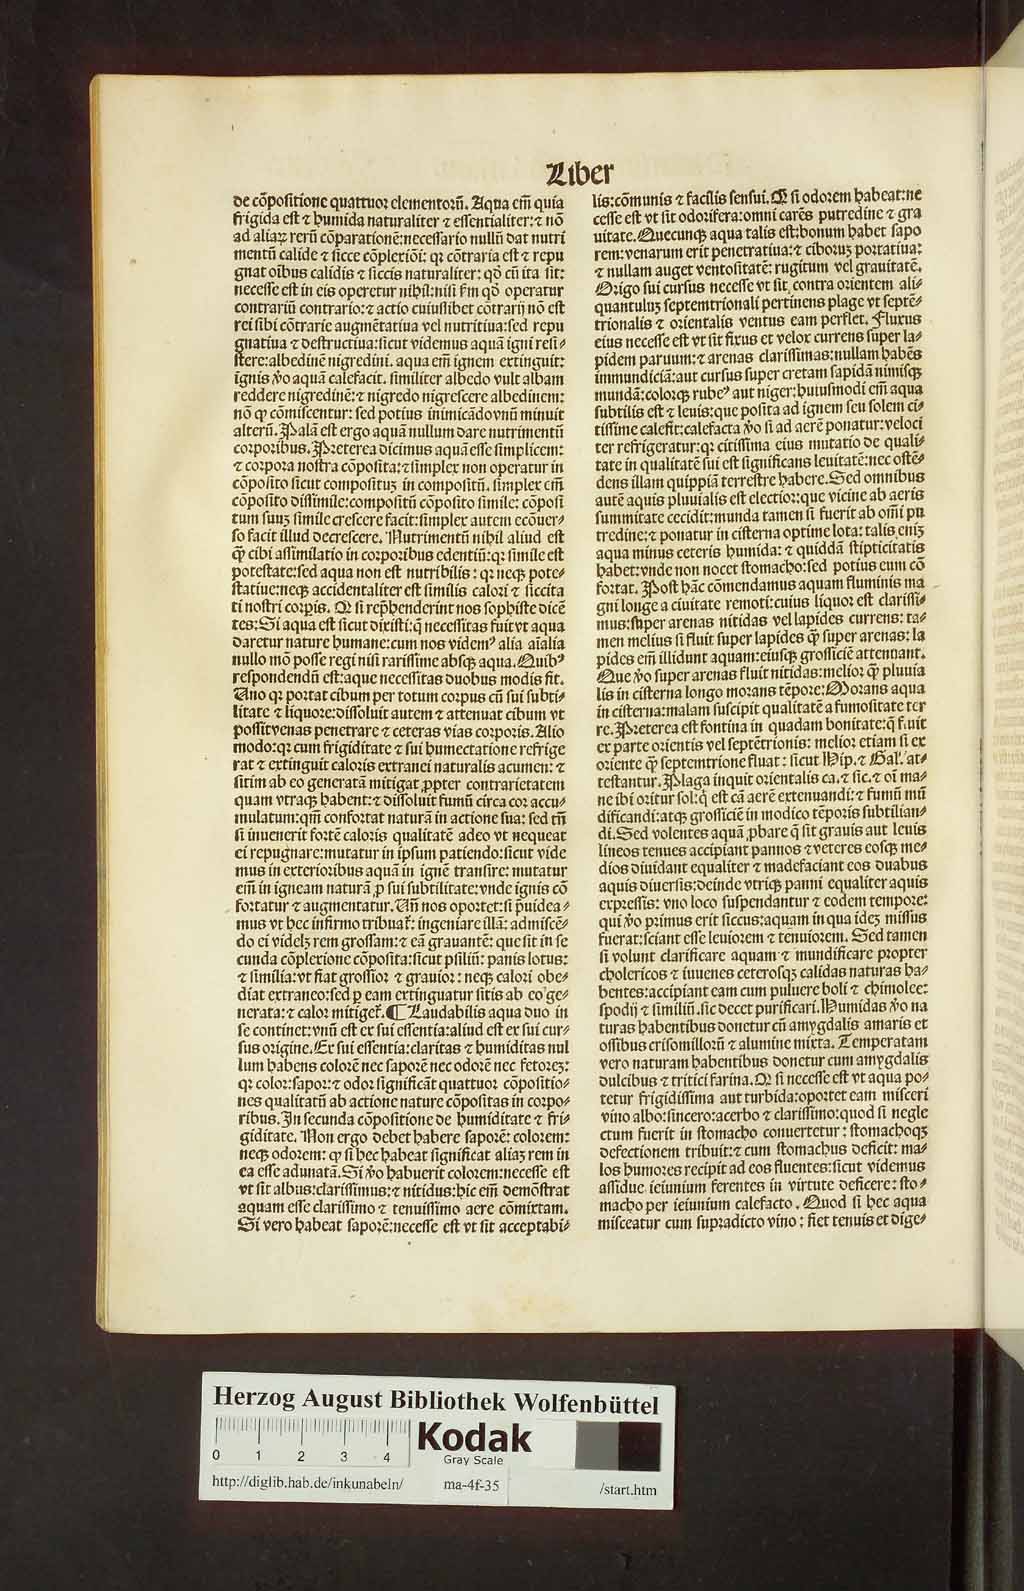 Liber
de cõpositione quattuor elementorũ. Aqua em̃ quia
frigida est ⁊ humida naturaliter ⁊ essentialiter: ⁊ nõ
ad aliaꝝ rerũ cõparationẽ: necessario nullũ dat nutri
mentũ calide ⁊ sicce cõplexiõi: qꝛ cõtraria est ⁊ repu
gnat oĩbus calidis ⁊ siccis naturaliter: qđ cũ ita sit:
necesse est in eis operetur nihil: nisi fm̃ qđ operatur
contrariũ contrario: ⁊ actio cuiuslibet cõtrarij nõ est
rei sibi cõtrarie augmẽtatiua vel nutritiua: sed repu
gnatiua ⁊ destructiua: sicut videmus aquã igni resi-
stere: albedinẽ nigredini. aqua em̃ ignem extinguit:
ignis ṽo aquã calefacit. similiter albedo vult albam
reddere nigredinẽ: ⁊ nigredo nigrescere albedinem:
nõ ꝙ cõmiscentur: sed potius inimicãdo vnũ minuit
alterũ. Palã est ergo aquã nullum dare nutrimentũ
corporibus. Preterea dicimus aquã esse simplicem:
⁊ corpora nostra cõposita: ⁊ simplex non operatur in
cõposito sicut composituʒ in compositũ. simplex em̃
cõposito dissimile: compositũ cõposito simile: cõposi
tum suuʒ simile crescere facit: simplex autem ecõuer-
so facit illud decrescere. Nutrimentũ nihil aliud est
ꝙ̃ cibi assimilatio in corporibus edentiũ: qꝛ simile est
potestate: sed aqua non est nutribilis: qꝛ neqꝫ pote-
statiue: neqꝫ accidentaliter est similis calori ⁊ siccita
ti nostri corpis. Qꝛ si rep̃henderint nos sophiste dicẽ
tes: Si aqua est sicut dixisti: q̃ necessitas fuit vt aqua
daretur nature humane: cum nos videmꝰ alia aĩalia
nullo mõ posse regi nisi rarissime absqꝫ aqua. Quibꝰ
respondendũ est: aque necessitas duobus modis fit.
Uno qꝛ portat cibum per totum corpus cũ sui subti-
litate ⁊ liquore: dissoluit autem ⁊ attenuat cibum vt
possit venas penetrare ⁊ ceteras vias corporis. Alio
modo: qꝛ cum frigiditate ⁊ sui humectatione refrige
rat ⁊ extinguit caloris extranei naturalis acumen: ⁊
sitim ab eo generatã mitigat ꝓpter contrarietatem
quam vtraqꝫ habent: ⁊ dissoluit fumũ circa cor accu-
mulatum: qm̃ confortat naturã in actione sua: sed tñ
si inuenerit fortẽ caloris qualitatẽ adeo vt nequeat
ei repugnare: mutatur in ipsum patiendo: sicut vide
mus in exterioribus aquã in ignẽ transire: mutatur
em̃ in igneam naturã ꝓ sui subtilitate: vnde ignis cõ
fortatur ⁊ augmentatur. Uñ nos oportet: si p̃uidea-
mus vt hec infirmo tribuat̃: ingeniare illã: admiscẽ-
do ei videlʒ rem grossam: ⁊ eã grauantẽ: que sit in se
cunda cõplexione cõposita: sicut psiliũ: panis lotus:
⁊ similia: vt fiat grossior ⁊ grauior: neqꝫ calori obe-
diat extraneo: sed ꝑ eam extinguatur sitis ab eo ge-
nerata: ⁊ calor mitiget̃. ¶ Laudabilis aqua duo in
se continet: vnũ est ex sui essentia: aliud est ex sui cur-
sus origine. Ex sui essentia: claritas ⁊ humiditas nul
lum habens colorẽ nec saporẽ nec odorẽ nec fetoreʒ:
qꝛ color: sapor: ⁊ odor significãt quattuor cõpositio-
nes qualitatũ ab actione nature cõpositas in corpo-
ribus. In secunda cõpositione de humiditate ⁊ fri-
giditate. Non ergo debet habere saporẽ: colorem:
neqꝫ odorem: ꝙ si hec habeat significat aliaʒ rem in
ea esse adunatã. Si ṽo habuerit colorem: necesse est
vt sit albus: clarissimus: ⁊ nitidus: hic em̃ demõstrat
aquam esse clarissimo ⁊ tenuissimo aere cõmixtam.
Si vero habeat saporẽ: necesse est vt sit acceptabi-
lis: cõmunis ⁊ facilis sensui. Qꝛ si odorem habeat: ne
cesse est vt sit odorifera: omni carẽs putredine ⁊ gra
uitate. Quecunqꝫ aqua talis est: bonum habet sapo
rem: venarum erit penetratiua: ⁊ ciboruʒ portatiua:
⁊ nullam auget ventositatẽ: rugitum vel grauitatẽ.
Origo sui cursus necesse vt sit contra orientem ali-
quantuluʒ septemtrionali pertinens plage vt septẽ-
trionalis ⁊ orientalis ventus eam perflet. Fluxus
eius necesse est vt sit fixus et velox currens super la-
pidem paruum: ⁊ arenas clarissimas: nullam habẽs
immundiciã: aut cursus super cretam sapidã nimisqꝫ
mundã: colorqꝫ rubeꝰ aut niger: huiusmodi em̃ aqua
subtilis est ⁊ leuis: que posita ad ignem seu solem ci-
tissime calefit: calefacta ṽo si ad aerẽ ponatur: veloci
ter refrigeratur: qꝛ citissima eius mutatio de quali-
tate in qualitatẽ sui est significans leuitatẽ: nec ostẽ-
dens illam quippiã terrestre habere. Sed omnibus
autẽ aquis pluuialis est electior: que vicine ab aeris
summitate cecidit: munda tamen si fuerit ab om̃i pu
tredine: ⁊ ponatur in cisterna optime lota: talis eniʒ
aqua minus ceteris humida: ⁊ quiddã stipticitatis
habet: vnde non nocet stomacho: sed potius eum cõ
fortat. Post hãc cõmendamus aquam fluminis ma
gni longe a ciuitate remoti: cuius liquor est clarissi-
mus: super arenas nitidas vel lapides currens: ta-
men melius si fluit super lapides ꝙ̃ super arenas: la
pides em̃ illidunt aquam: eiusqꝫ grossiciẽ attenuant.
Que ṽo super arenas fluit nitidas: melior ꝙ̃ pluuia
lis in cisterna longo morans tẽpore: Morans aqua
in cisterna: malam suscipit qualitatẽ a fumositate ter
re. Preterea est fontina in quadam bonitate: q̃ fluit
ex parte orientis vel septẽtrionis: melior etiam si ex
oriente ꝙ̃ septemtrione fluat: sicut Hip. ⁊ Gal. at-
testantur. Plaga inquit orientalis ca. ⁊ sic. ⁊ oĩ ma-
ne ibi oritur sol: q̃ est cã aerẽ extenuandi: ⁊ fumũ mũ
dificandi: atqꝫ grossiciẽ in modico tẽporis subtilian-
di. Sed volentes aquã ꝓbare q̃ sit grauis aut leuis
lineos tenues accipiant pannos ⁊ veteres eosqꝫ me-
dios diuidant equaliter ⁊ madefaciant eos duabus
aquis diuersis: deinde vtriqꝫ panni equaliter aquis
expressis: vno loco suspendantur ⁊ eodem tempore:
qui ṽo primus erit siccus: aquam in qua ideʒ missus
fuerat: sciant esse leuiorem ⁊ tenuiorem. Sed tamen
si volunt clarificare aquam ⁊ mundificare propter
cholericos ⁊ iuuenes ceterosqꝫ calidas naturas ha-
bentes: accipiant eam cum puluere boli ⁊ chimolee:
spodij ⁊ similiũ. sic decet purificari. Humidas ṽo na
turas habentibus donetur cũ amygdalis amaris et
ossibus crisomillorũ ⁊ alumine mixta. Temperatam
vero naturam habentibus donetur cum amygdalis
dulcibus ⁊ tritici farina. Qꝛ si necesse est vt aqua po-
tetur frigidissima aut turbida: oportet eam misceri
vino albo: sincero: acerbo ⁊ clarissimo: quod si negle
ctum fuerit in stomacho conuertetur: stomachoqꝫ
defectionem tribuit: ⁊ cum stomachus deficit: ma-
los humores recipit ad eos fluentes: sicut videmus
assidue ieiunium ferentes in virtute deficere: sto-
macho per ieiunium calefacto. Quod si hec aqua
misceatur cum supradicto vino: fiet tenuis et dige-
Herzog August Bibliothek Wolfenbüttel
0 1 2 3 4
Kodak
Gray Scale
http://diglib.hab.de/inkunabeln/ ma-4f-35 /start.htm